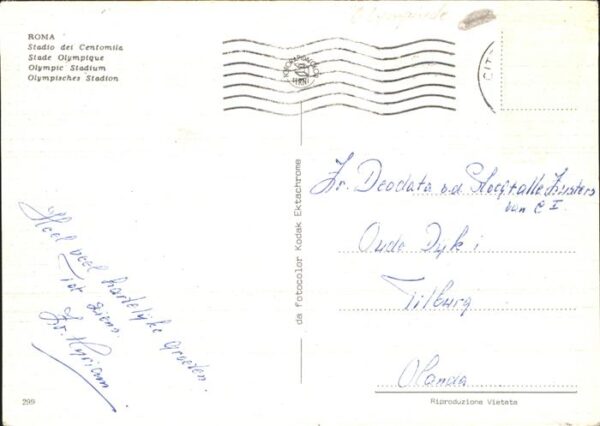 ROMA
Stadio dei Centomila
Stade Olympique
Olympic Stadium
Olympisches Stadion
CITT
Heel veel hartelijke groeten.
tot ziens.
Zr. Myriam
da fotocolor Kodak Ektachrome
Zr. Deodata v.d. Zusters
van C I.
Oude Dijk 1
Tilburg
Olanda
299
Riproduzione Vietata